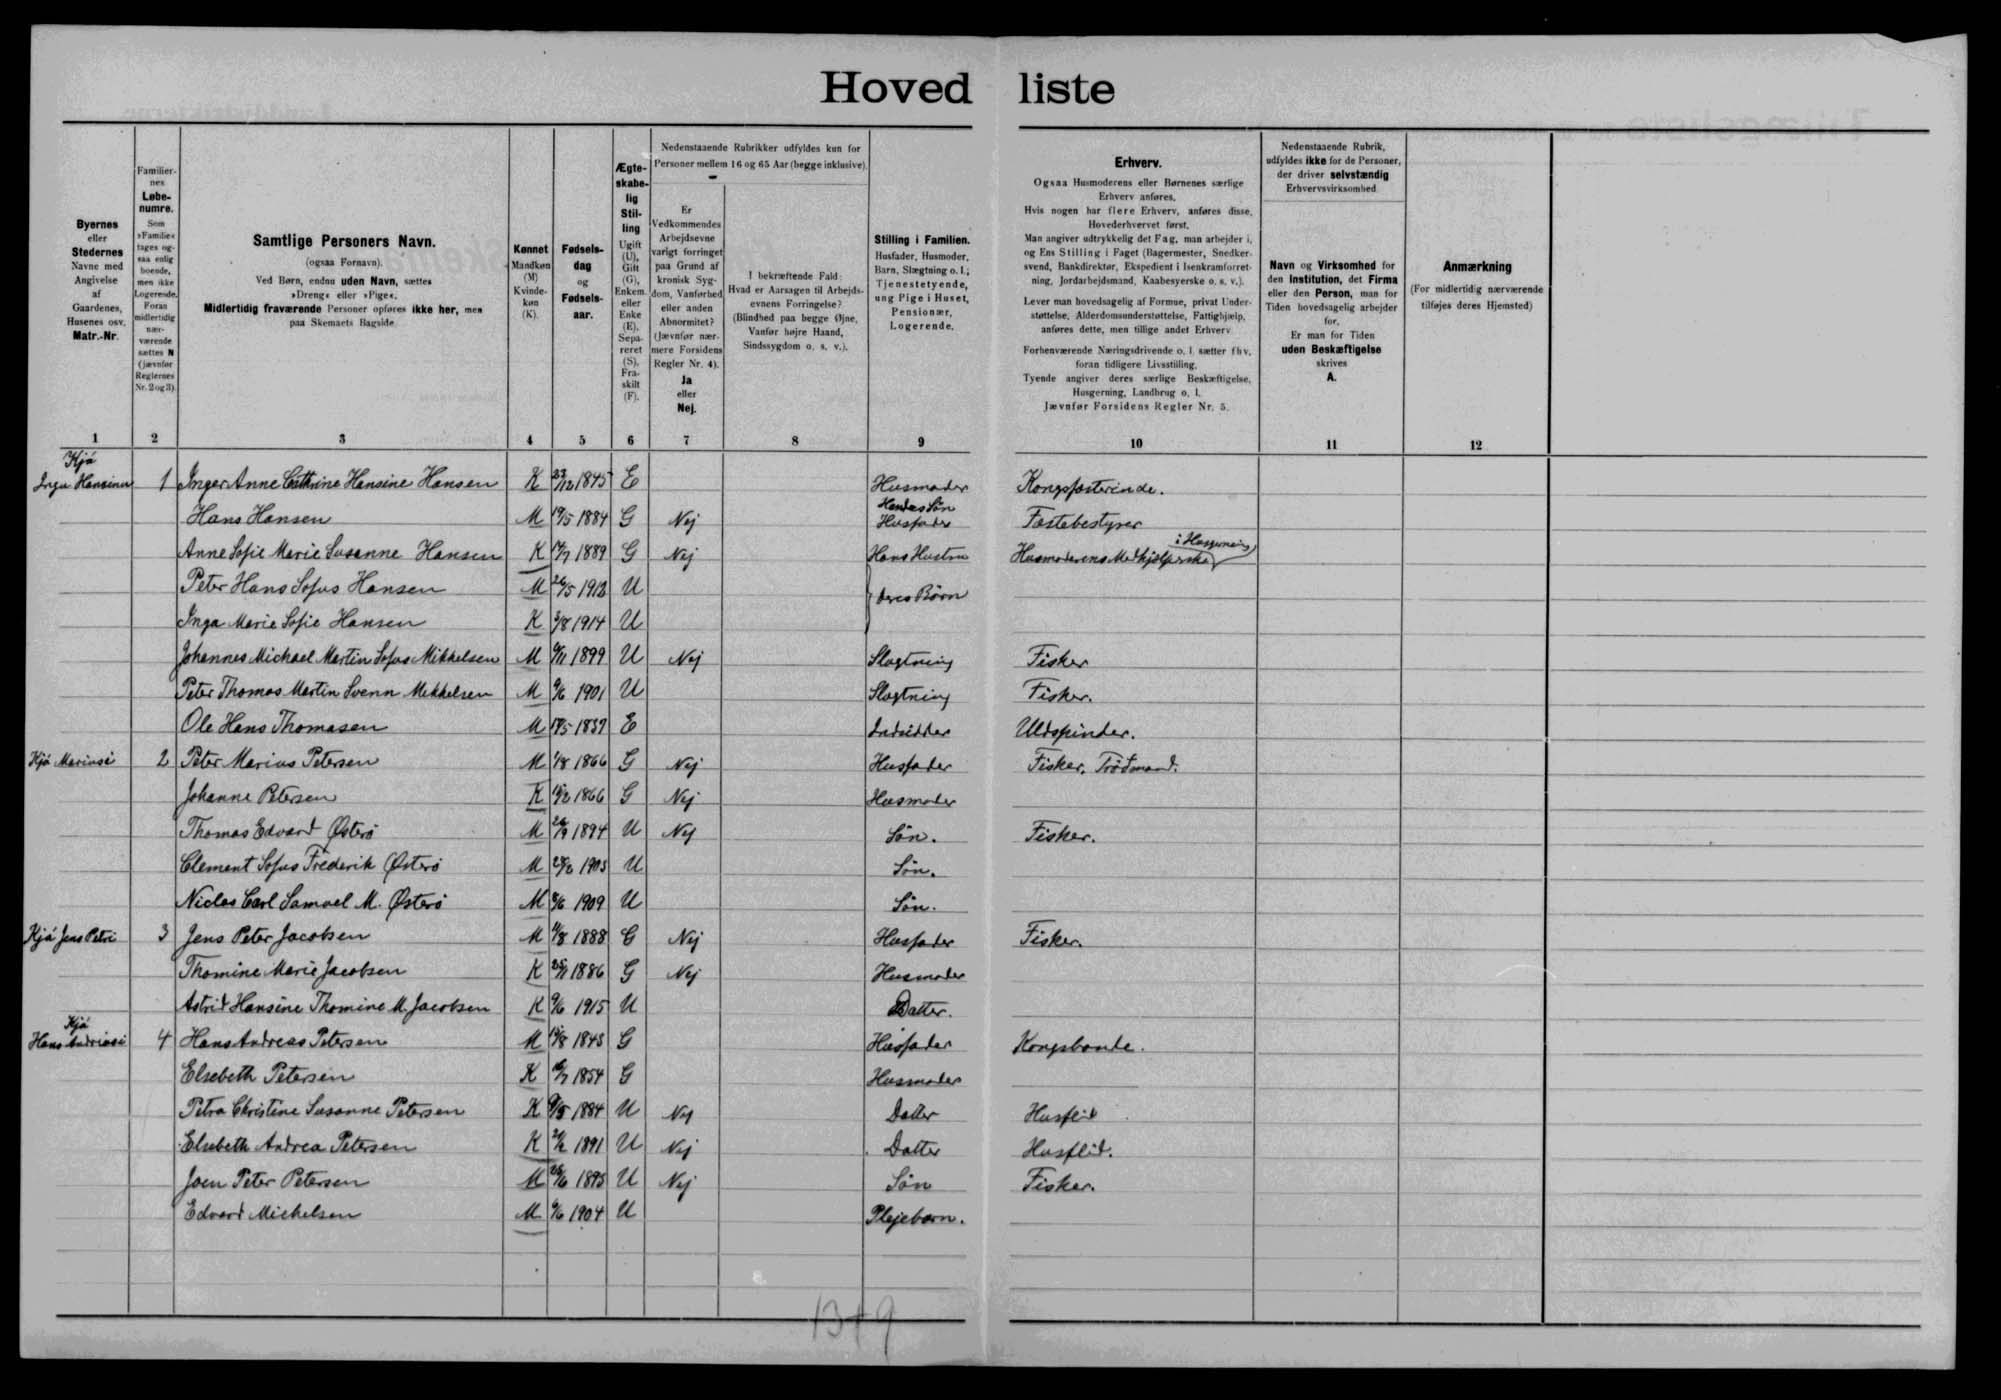 Hovedliste
Byernes
eller
Stedernes
Navne med
Angivelse
af
Gaardenes,
Husenes osv.
Matr.-Nr.
Familier-
nes
Løbe-
numre.
Som
»Familie«
tages og-
saa enlig
boende,
men ikke
Logerende.
Foran
midlertidig
nær-
værende
sættes N
(jævnfør
Reglernes
Nr. 2 og 3).
Samtlige Personers Navn.
(ogsaa Fornavn).
Ved Børn, endnu uden Navn, sættes
»Dreng« eller »Pige«.
Midlertidig fraværende Personer opføres ikke her, men
paa Skemaets Bagside.
Kønnet
Mandkøn
(M)
Kvinde-
køn
(K).
Fødsels-
dag
og
Fødsels-
aar.
Ægte-
skabe-
lig
Stil-
ling
Ugift
(U),
Gift
(G),
Enkem.
eller
Enke
(E),
Sepa-
reret
(S),
Fra-
skilt
(F).
Nedenstaaende Rubrikker udfyldes kun for
Personer mellem 16 og 65 Aar (begge inklusive).
Er
Vedkommendes
Arbejdsevne
varigt forringet
paa Grund af
kronisk Syg-
dom, Vanførhed
eller anden
Abnormitet?
(Jævnfør nær-
mere Forsidens
Regler Nr. 4).
Ja
eller
Nej.
I bekræftende Fald:
Hvad er Aarsagen til Arbejds-
evnens Forringelse?
(Blindhed paa begge Øjne,
Vanfør højre Haand,
Sindssygdom o. s. v.).
Stilling i Familien.
Husfader, Husmoder,
Barn, Slægtning o. l.;
Tjenestetyende,
ung Pige i Huset,
Pensionær,
Logerende.
Erhverv.
Ogsaa Husmoderens eller Børnenes særlige
Erhverv anføres.
Hvis nogen har flere Erhverv, anføres disse,
Hovederhvervet først.
Man angiver udtrykkelig det Fag, man arbejder i,
og Ens Stilling i Faget (Bagermester, Snedker-
svend, Bankdirektør, Ekspedient i Isenkramforret-
ning, Jordarbejdsmand, Kaabesyerske o. s. v.).
Lever man hovedsagelig af Formue, privat Under-
støttelse, Alderdomsunderstøttelse, Fattighjælp,
anføres dette, men tillige andet Erhverv.
Forhenværende Næringsdrivende o. l. sætter fhv.
foran tidligere Livsstilling.
Tyende angiver deres særlige Beskæftigelse,
Husgerning, Landbrug o. l.
Jævnfør Forsidens Regler Nr. 5.
Nedenstaaende Rubrik,
udfyldes ikke for de Personer,
der driver selvstændig
Erhvervsvirksomhed.
Navn og Virksomhed for
den Institution, det Firma
eller den Person, man for
Tiden hovedsagelig arbejder
for.
Er man for Tiden
uden Beskæftigelse
skrives
A.
Anmærkning
(For midlertidig nærværende
tilføjes deres Hjemsted)
1 2 3 4 5 6 7 8 9 10 11 12
Kjá
1 Inger Anne Cathrine Hansine Hansen K 23/12 1845 E Husmoder Kongsfæsterinde.
Hans Hansen M 19/5 1884 G Nej Hendes Søn Husfader Fæstebestyrer
Anne Sofie Marie Susanne Hansen K 1889 G Nej Hans Hustru Husmoderens Medhjælperske i Husgerning
Peter Hans Sofus Hansen M 26/5 1912 U Deres Børn
Inga Marie Sofie Hansen K 3/8 1914 U
Johannes Michael Martin Sofus Mikkelsen M 1899 U Nej Slægtning Fisker
Peter Thomas Martin Svenn Mikkelsen M 1901 U Slægtning Fisker.
Ole Hans Thomasen M 1839 E Indsidder Uldspinder.
Kjá 2 Peter Marius Petersen M 1/8 1866 G Nej Husfader Fisker,
Johanne Petersen K 1866 G Nej Husmoder
Thomas Edvard Østerø M 26/9 1894 U Nej Søn. Fisker.
Clement Sofus Frederik Østerø M 1903 U Søn.
Niclas Carl Samuel M. Østerø M 1909 U Søn.
Kjá Jens Petri 3 Jens Peter Jacobsen M 1888 G Nej Husfader Fisker.
Thomine Marie Jacobsen K 1886 G Nej Husmoder
Astrid Hansine Thomine M. Jacobsen K 1915 U Datter.
Kjá
4 Hans Andreas Petersen M 1843 G Husfader Kongsbonde.
Elsebeth Petersen K 1854 G Husmoder
Petra Christine Susanne Petersen K 1884 U Nej Datter Husflid
Elsebeth Andrea Petersen K 1891 U Nej Datter Husflid.
Joen Peter Petersen M 1895 U Nej Søn Fisker.
Edvard Michelsen M 1904 U Plejebarn.
13+9